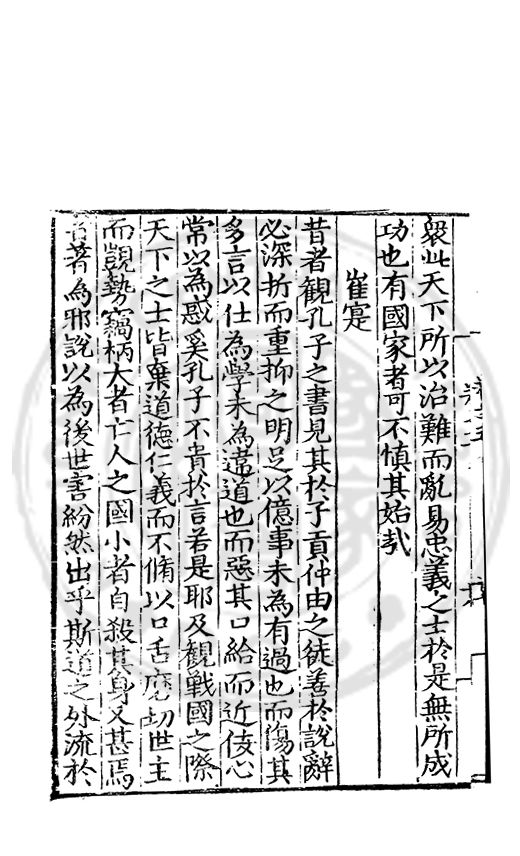 衆此天下所以治難而亂易忠義之士於是無所成
功也有國家者可不慎其始哉
崔寔
昔者觀孔子之書見其於子貢仲由之徒善於說辭
必深折而重抑之明足以億事未為有過也而傷其
多言以仕為學未為濫道也而惡其口給而近佞心
常以為惑奚孔子不貴於言若是耶及觀戰國之際
天下之士皆棄道德仁義而不脩以口舌磨切世主
而覬勢竊柄大者亡人之國小者自殺其身又甚焉
者著為邪說以為後世害紛然出乎斯道之外流於